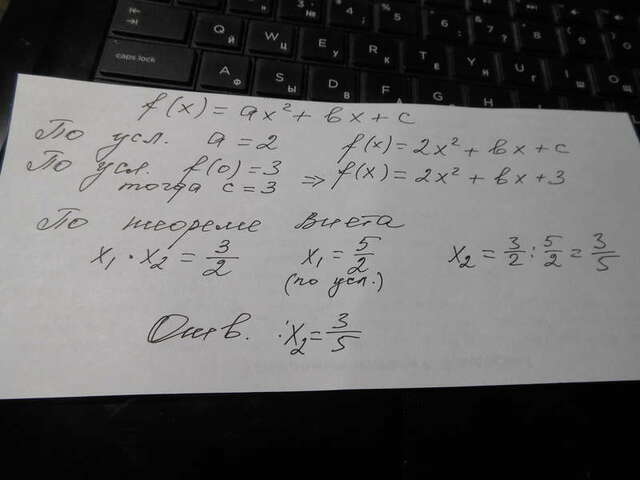 caps lock
Q Й
W Ц
E У
R К
T Е
Y Н
U Г
I Ш
A Ф
S Ы
D В
F
G
H
J
f(x) = ax² + вx + c
По усл. a = 2 f(x) = 2x² + вx + c
По усл. f(0) = 3
тогда c = 3 ⇒ f(x) = 2x² + вx + 3
По теореме Виета
x₁ · x₂ = 3/2 x₁ = 5/2 x₂ = 3/2 : 5/2 = 3/5
(по усл.)
Отв. : x₂ = 3/5